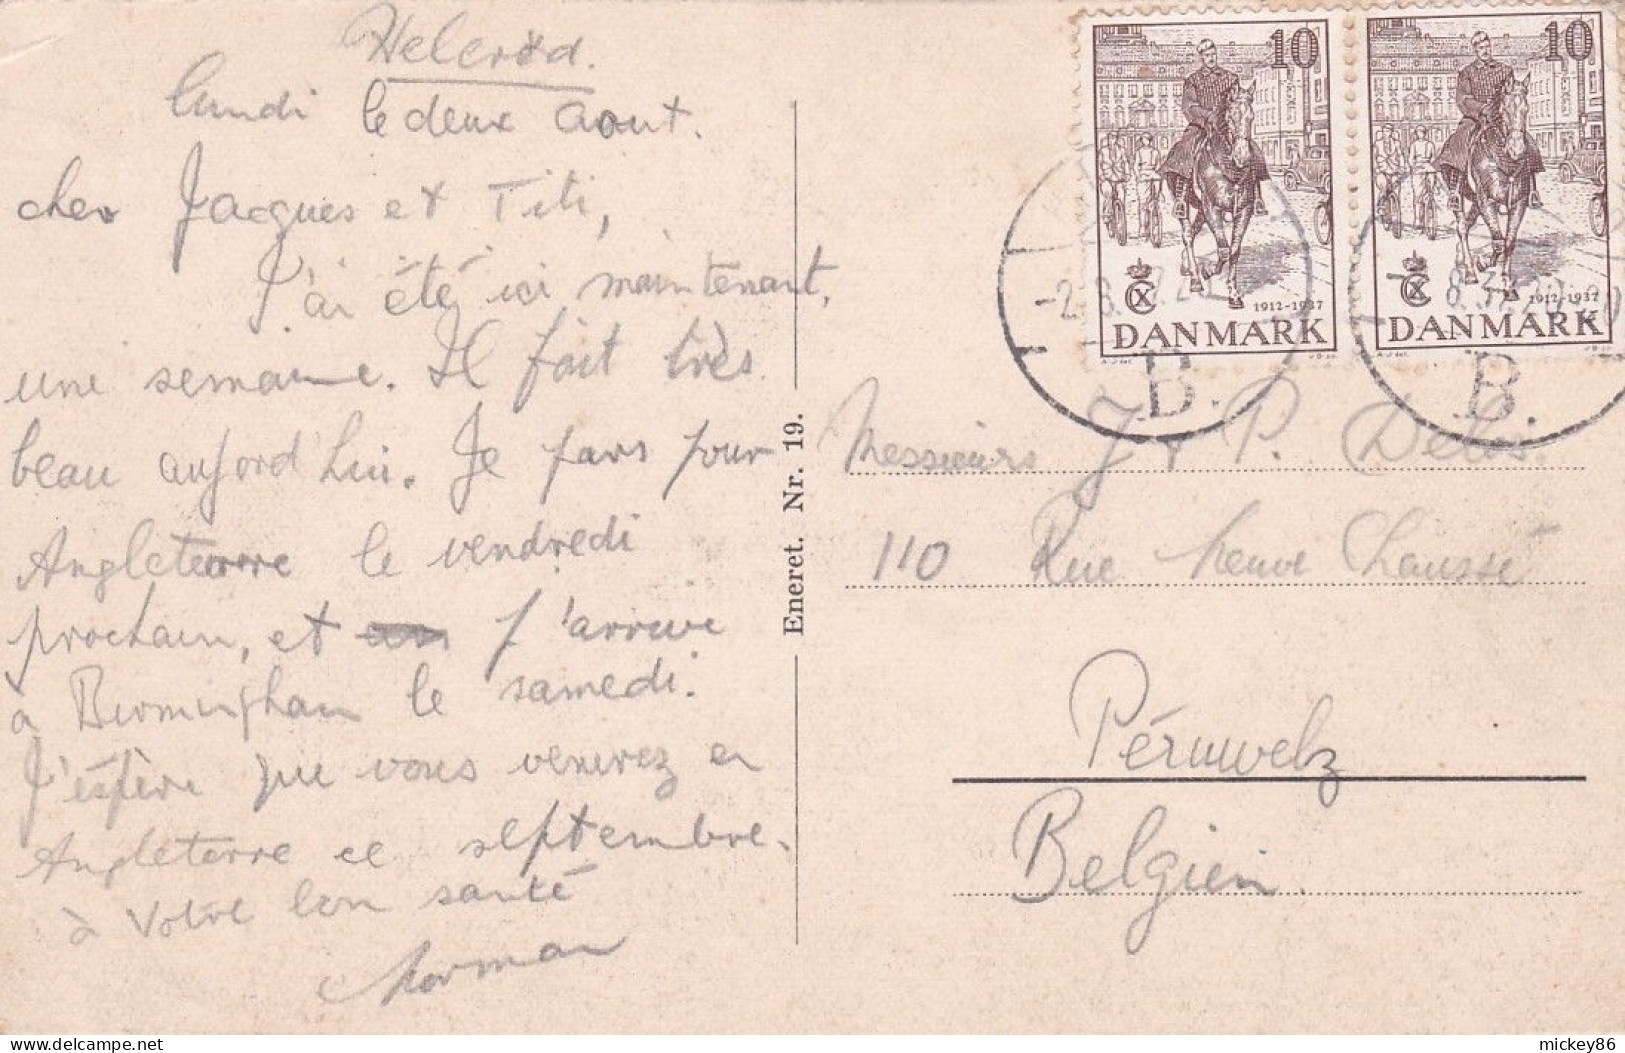 Helerød.
lundi le deux aout.
cher Jacques et Titi,
J'ai été ici maintenant,
une semaine. Il fait très
beau aujord'hui. Je pars pour
Angleterre le vendredi
prochain, et j'arrive
a Birmingham le samedi.
J'éspère que vous venurez en
Angleterre ce septembre.
à votre bon santé
Norman
Eneret. Nr. 19.
10
1912-1937
DANMARK
10
1912-1937
DANMARK
B.
B.
Messieurs J & P. Delis.
110 Rue Neuve Chaussé
Péruwelz
Belgien.
delcampe.net
mickey86